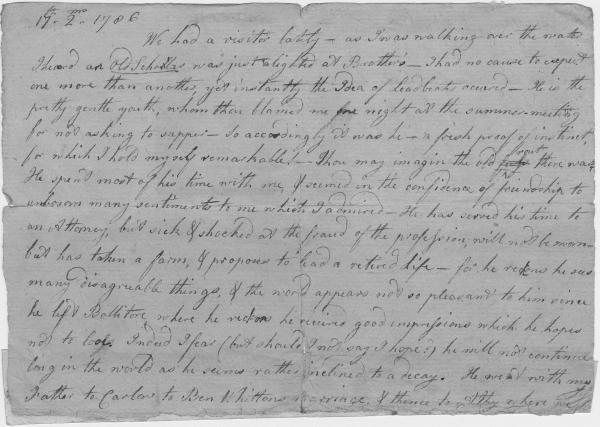 17th. 2mo. 1786
We had a visitor lately – as I was walking over the water
I heard an Old Scholar was just alighted at Brother's – I had no cause to expect
one more than another, yet instantly the Idea of Leadbeatr occured – He is the
pretty gentle youth, whom thou blamed me one night at the summer-meeting
for not asking to supper – So accordingly it was he – a fresh proof of instinct,
for which I hold myself remarkable! – Thou may imagin the old rout there was
He spent most of his time with me, & seemed in the confidence of friendship to
unbosom many sentiments to me which I admired – He has served his time to
an Attorney, but sick & shocked at the fraud of the profession, will not be sworn –
but has taken a farm, & proposes to lead a retired life – for he reckons he sees
many disagreable things, & the world appears not so pleasant to him since
he left Ballitore, where he reckons he recived good impressions which he hopes
not to lose Indeed I fear (but should I not say I hope?) he will not continue
long in the world as he seems rather inclined to a decay. He went with my
Father to Carlow to Ben Whittons marriage, & thence to where